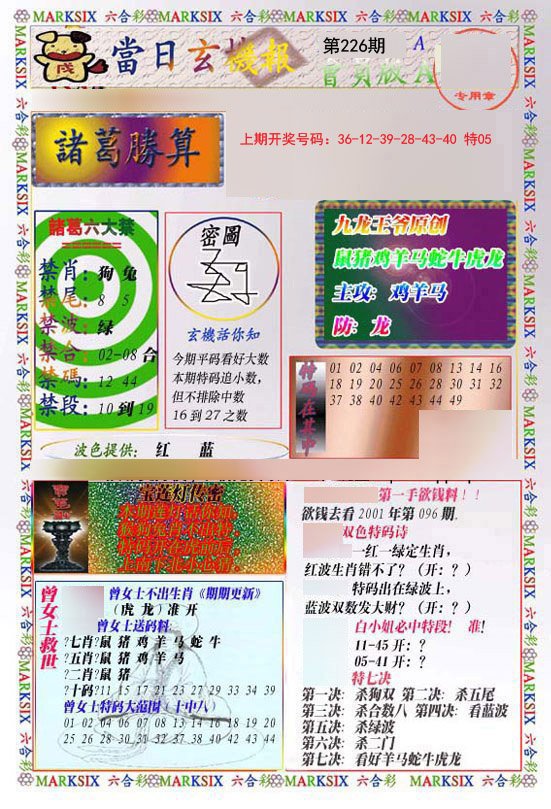 MARKSIX 六合彩 MARKSIX 六合彩 MARKSIX 六合彩 MARKSIX 六合彩
當日玄機報
第226期
A
專用章
諸葛勝算
上期开奖号码：36-12-39-28-43-40 特05
諸葛六大禁
禁肖：狗 兔
禁尾：8 5
禁波：绿
禁合：02-08合
禁碼：12 44
禁段：10到19
密圖
玄機話你知
今期平码看好大数
本期特码追小数，
但不排除中数
16到27之数
九龙王爷原创
鼠猪鸡羊马蛇牛虎龙
主攻：鸡羊马
防：龙
特码在其中
01 02 04 06 07 08 13 14 16
18 19 20 25 26 28 30 31 32
37 38 40 42 43 44 49
波色提供： 红 蓝
宝莲灯传密
第一手欲钱料！！
欲钱去看2001年第096期.
双色特码诗
一红一绿定生肖，
红波生肖错不了？（开：？）
特码出在绿波上，
蓝波双数发大财？（开：？）
白小姐必中特段! 准!
11-45 开：？
05-41 开：？
特七决
第一决：杀狗双 第二决：杀五尾
第三决：杀合数八 第四决：看蓝波
第五决：杀绿波
第六决：杀二门
第七决：看好羊马蛇牛虎龙
曾女士救世
曾女士不出生肖《期期更新》
（虎 龙）准 开
曾女士送码料:
?七肖?鼠 猪 鸡 羊 马 蛇 牛
?五肖?鼠 猪 鸡 羊 马
?二肖?鼠 猪
?十码?11 15 17 21 23 27 29 33 34 39
曾女士特码大范围（十中八）
01 02 04 06 07 08 13 14 16 18 19 20
25 26 28 30 31 32 37 38 40 42 43 44
MARKSIX 六合彩 MARKSIX 六合彩 MARKSIX 六合彩 MARKSIX 六合彩